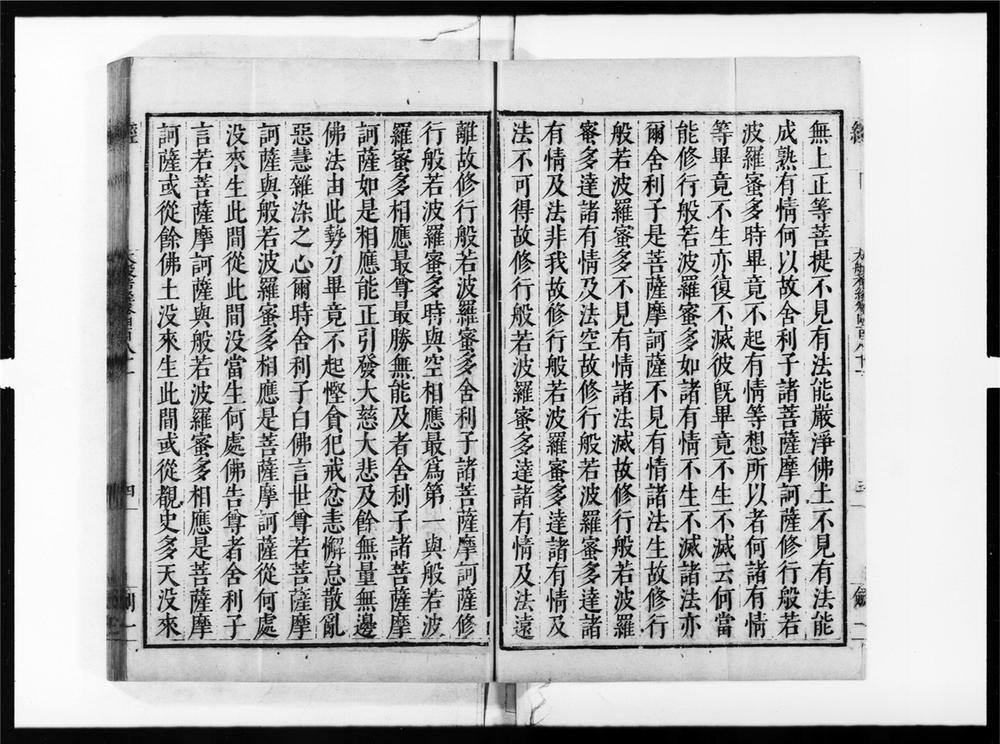 無上正等菩提不見有法能嚴淨佛土不見有法能
成熟有情何以故舍利子諸菩薩摩訶薩修行般若
波羅蜜多時畢竟不起有情等想所以者何諸有情
等畢竟不生亦復不滅彼旣畢竟不生不滅云何當
能修行般若波羅蜜多如諸有情不生不滅諸法亦
爾舍利子是菩薩摩訶薩不見有情諸法生故修行
般若波羅蜜多不見有情諸法滅故修行般若波羅
蜜多達諸有情及法空故修行般若波羅蜜多達諸
有情及法非我故修行般若波羅蜜多達諸有情及
法不可得故修行般若波羅蜜多達諸有情及法遠
離故修行般若波羅蜜多舍利子諸菩薩摩訶薩修
行般若波羅蜜多時與空相應最爲第一與般若波
羅蜜多相應最尊最勝無能及者舍利子諸菩薩摩
訶薩如是相應能正引發大慈大悲及餘無量無邊
佛法由此勢力畢竟不起慳貪犯戒忿恚懈怠散亂
惡慧雜染之心爾時舍利子白佛言世尊若菩薩摩
訶薩與般若波羅蜜多相應是菩薩摩訶薩從何處
没來生此間從此間没當生何處佛告尊者舍利子
言若菩薩摩訶薩與般若波羅蜜多相應是菩薩摩
訶薩或從餘佛土没來生此間或從覩史多天没來
四